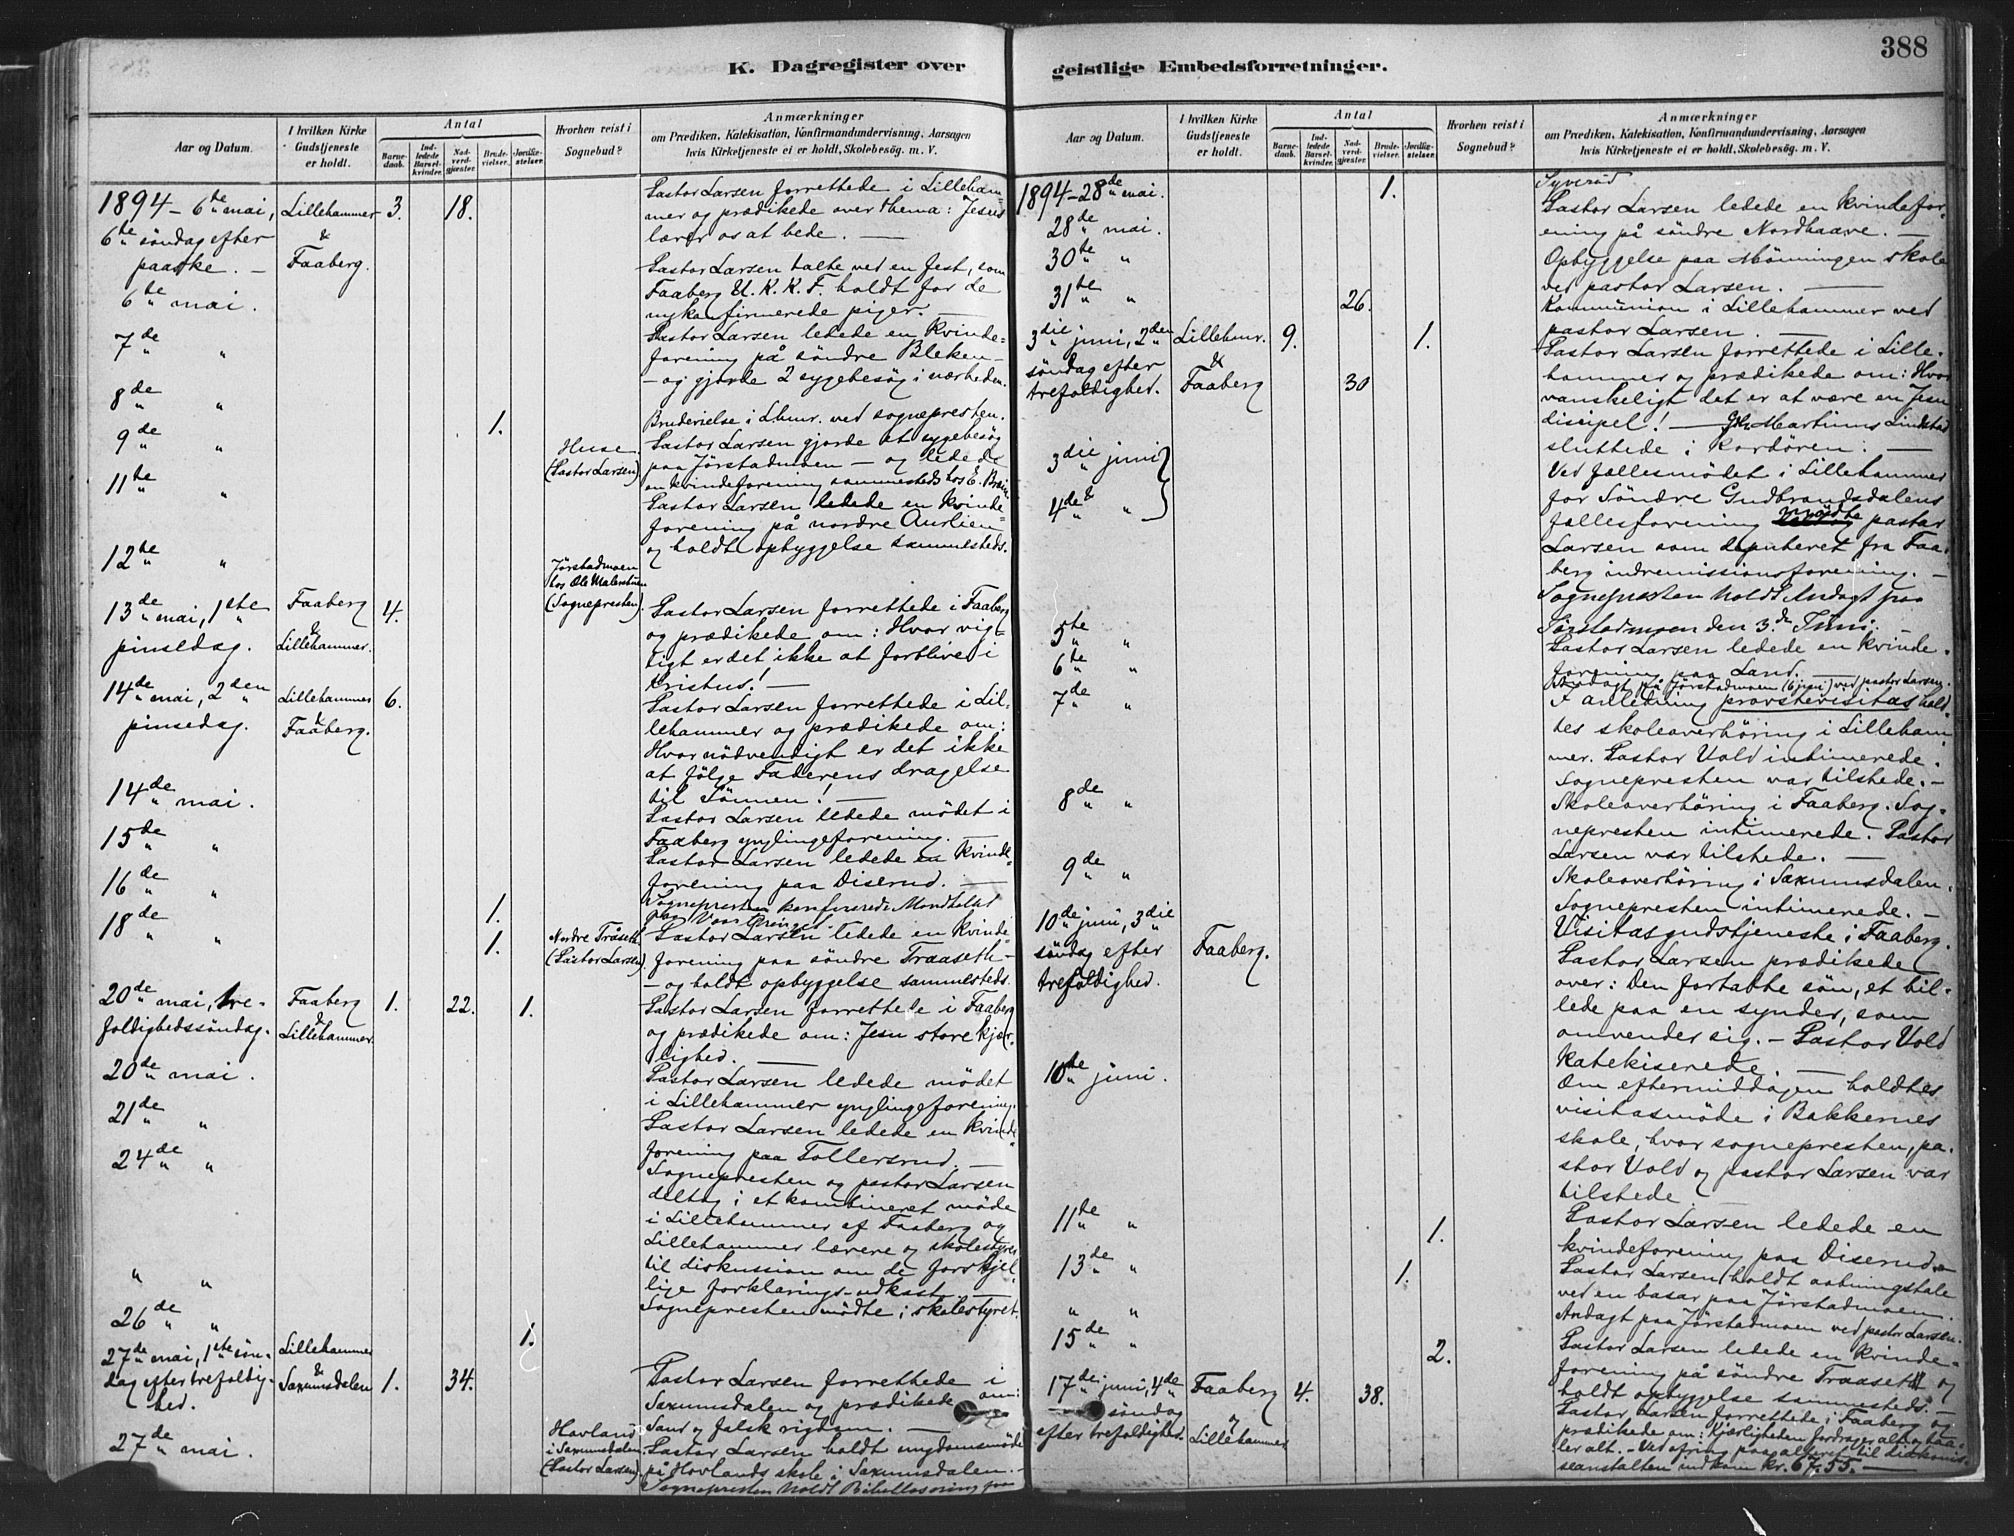 K. Dagregister over
Aar og Datum.
I hvilken Kirke Gudstjeneste er holdt.
Antal
Barne-daab.
Ind-ledede Barsel-kvinder.
Nad-verd-gjæster.
Brude-vielser.
Jordfæ-stelser.
Hvorhen reist i Sognebud?
Anmærkninger
om Prædiken, Katekisation, Konfirmandundervisning, Aarsagen
hvis Kirketjeneste ei er holdt, Skolebesøg. m. V.
1894 – 6te mai,
6te söndag efter
paaske. –
Lillehammer
&
Faaberg.
3.
18.
Pastor Larsen forrettede i Lilleham-
mer og prædikede over thema: Jesus
lærer os at bede. –
6te mai.
Pastor Larsen talte ved en fest, som
Faaberg U. K. K. F. holdt for de
nykonfirmerede piger. –
7de "
Pastor Larsen ledede en kvinde-
forening på söndre Bleken –
– og gjorde 2 sygebesög i nærheden.
8de "
1.
Brudevielse i Lhmr. ved sognepresten.
9de "
Huse
(Pastor Larsen)
Pastor Larsen gjorde et sygebesög
paa Jörstadmoen – og ledede
en kvindeforening sammesteds hos E. Bræin.
11te "
Pastor Larsen ledede en kvinde-
forening på nordre Aurlien
og holdt opbyggelse sammesteds.
12te "
Jörstadmoen
hos Ole Malerstuen
(Sognepresten).
13de mai, 1ste
pinsedag.
Faaberg
&
Lillehammer.
4.
Pastor Larsen forrettede i Faaberg
og prædikede om: Hvor vig-
tigt er det ikke at forblive i
Kristus! –
14de mai, 2den
pinsedag.
Lillehammer
&
Faaberg.
6.
Pastor Larsen forrettede i Lil-
lehammer og prædikede om:
Hvor nödvendigt er det ikke
at fölge Faderens dragelse
til Sönnen! –
14de mai.
Pastor Larsen ledede mödet i
Faaberg ynglingeforening. –
15de "
Pastor Larsen ledede en kvinde-
forening paa Diserud. –
16de "
1.
Sognepresten konfererede
18de "
1.
Nordre Tråseth
(Pastor Larsen).
Pastor Larsen ledede en kvinde-
forening paa söndre Traaseth –
– og holdt opbyggelse sammesteds.
20de mai, tre-
foldighedssöndag.
Faaberg
&
Lillehammer.
1.
22.
1.
Pastor Larsen forrettede i Faaberg
og prædikede om: Jesu store kjær-
lighed. –
20de mai.
Pastor Larsen ledede mödet
i Lillehammer ynglingeforening.
21de "
Pastor Larsen ledede en kvinde-
forening paa Tollersrud. –
24de "
Sognepresten og pastor Larsen
deltog i et kombineret möde
i Lillehammer af Faaberg og
Lillehammer lærere og skolestyrer
til diskussion om de forskjel-
lige forklarings-udkast. –
" "
Sognepresten mödte i skolestyret.
26de "
1.
27de mai, 1ste sön-
dag efter trefoldig-
hed.
Lillehammer
&
Saxumsdalen
1.
34.
Pastor Larsen forrettede i
Saxumsdalen og prædikede om:
Sand og falsk rigdom. –
27de mai.
Hovland
i Saxumsdalen.
(Pastor Larsen).
Pastor Larsen holdt ungdomsmöde
på Hovlands skole i Saxumsdalen. –
Sognepresten holdt Bibellæsning paa
geistlige Embedsforretninger.
388
Aar og Datum.
I hvilken Kirke Gudstjeneste er holdt.
Antal
Barne-daab.
Ind-ledede Barsel-kvinder.
Nad-verd-gjæster.
Brude-vielser.
Jordfæ-stelser.
Hvorhen reist i Sognebud?
Anmærkninger
om Prædiken, Katekisation, Konfirmandundervisning, Aarsagen
hvis Kirketjeneste ei er holdt, Skolebesøg. m. V.
Syverud
1894 – 28de mai.
1.
Pastor Larsen ledede en kvindefor-
ening på söndre Nordhaave. –
28de mai.
30te "
Opbyggelse paa Mönningen skole
ved pastor Larsen. –
31te "
26.
Kommunion i Lillehammer ved
pastor Larsen. –
3die juni, 2den
söndag efter
trefoldighed.
Lillehmr.
&
Faaberg
9.
30
1.
Pastor Larsen forrettede i Lille-
hammer og prædikede om: Hvor
vanskeligt det er at være en Jesu
discipel! – Martinus Lindstad
sluttede i kordören. –
3die juni
&
4de "
Ved fællesmödet i Lillehammer
for Söndre Gudbrandsdalens
fællesforening mödte pastor
Larsen som deputeret fra Faa-
berg indremissionsforening. –
Sognepresten holdt Andagt paa
Jörstadmoen den 3de Juni. –
5te "
Pastor Larsen ledede en kvinde-
forening paa Land. –
6te "
Andagt på Jörstadmoen (6 juni) ved pastor Larsen.
7de "
I anledning provstevisitas hold-
tes skoleoverhöring i Lilleham-
mer. Pastor Vold intimerede.
Sognepresten var tilstede. –
8de "
Skoleoverhöring i Faaberg. Sog-
nepresten intimerede. Pastor
Larsen var tilstede. –
9de "
Skoleoverhöring i Saxumsdalen.
Sognepresten intimerede. –
10de juni, 3die
söndag efter
trefoldighed.
Faaberg.
Visitasgudstjeneste i Faaberg.
Pastor Larsen prædikede
over: Den fortabte sön, et bil-
lede paa en synder, som
omvender sig. – Pastor Vold
katekiserede. –
10de juni.
Om eftermiddagen holdtes
visitasmöde i Bakkernes
skole, hvor sognepresten, pa-
stor Vold og pastor Larsen var
tilstede
11te "
1.
Pastor Larsen ledede en
kvindeforening paa Diserud. –
13de "
1.
Pastor Larsen holdt aabningstale
ved en basar paa Jörstadmoen.
" "
Andagt paa Jörstadmoen ved pastor Larsen.
15de "
2.
Pastor Larsen ledede en kvinde-
forening på söndre Traaseth og
holdt opbyggelse sammesteds. –
17de juni, 4de
söndag
efter trefoldighed.
Faaberg
&
Lillehammer
4.
38.
Pastor Larsen forrettede i Faaberg og
prædikede om: Kjærligheden fordrager alt og taa-
ler alt. – Ved ofring paa alteret til diakonis-
seanstalten indkom kr. 67,55. –